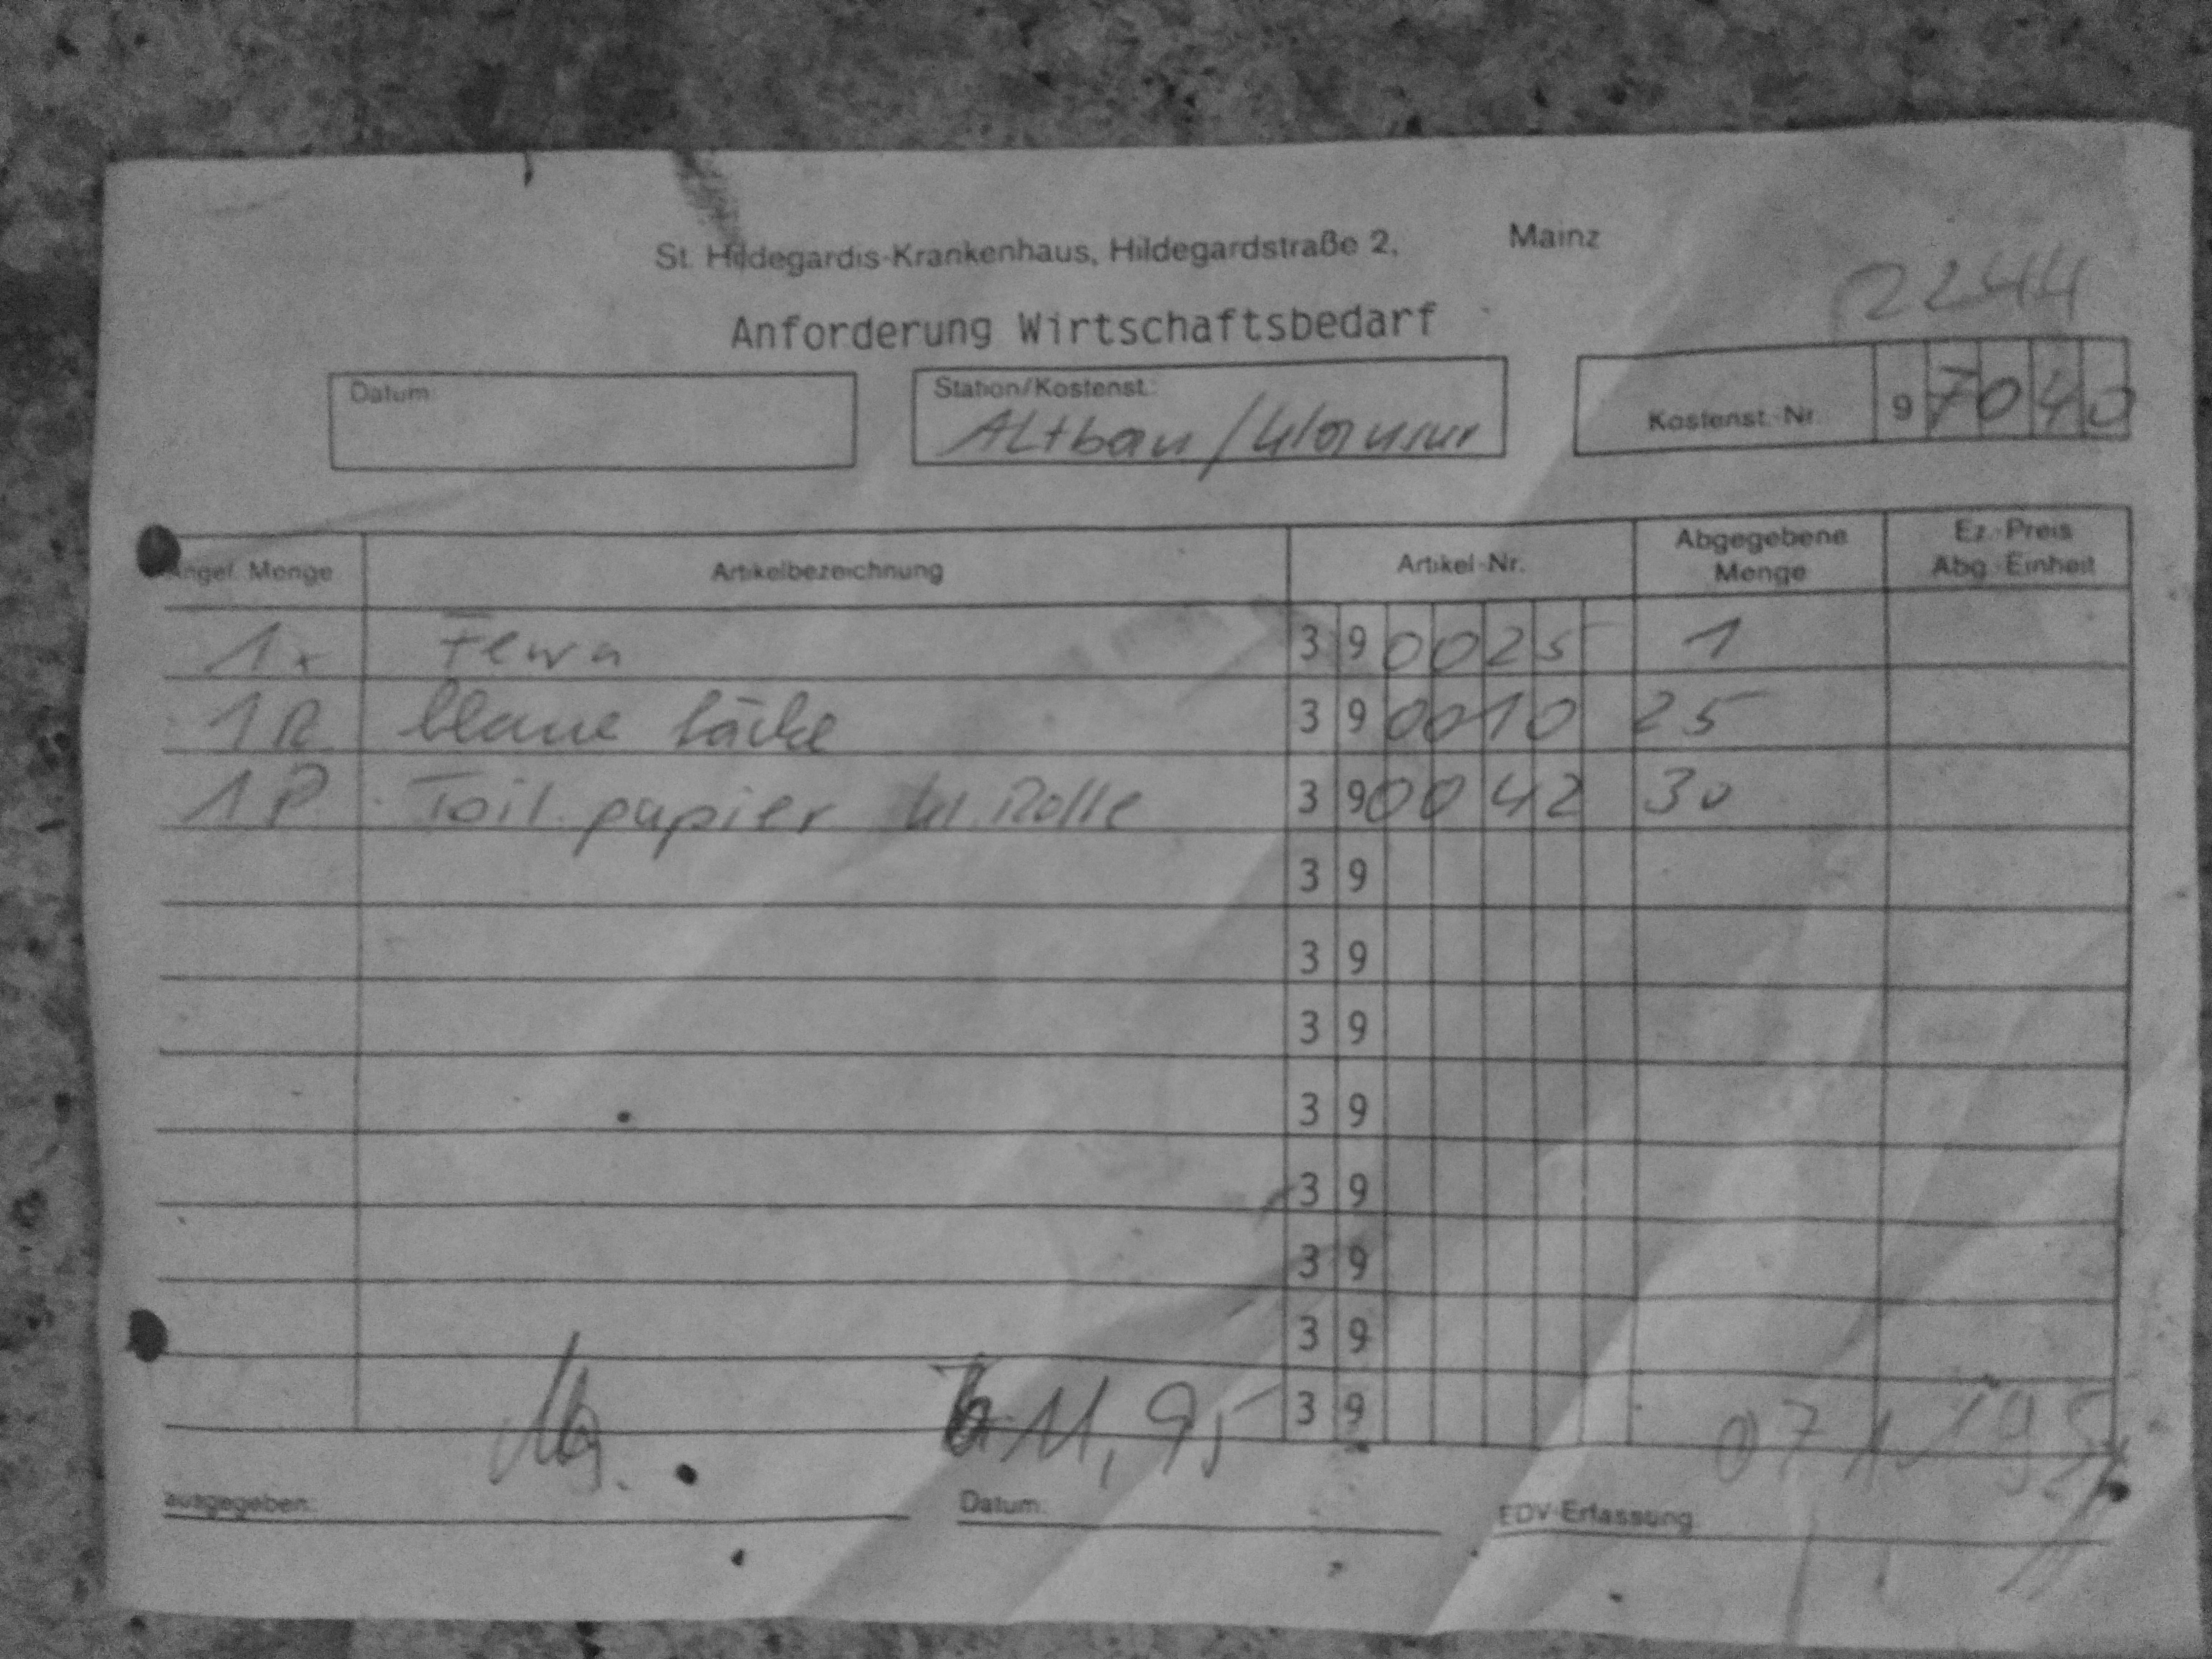 St. Hildegardis-Krankenhaus, Hildegardstraße 2, Mainz
2244
Anforderung Wirtschaftsbedarf
Datum:
Station/Kostenst.:
Altbau / Klausur
Kostenst.-Nr. 9 7 0 4 0
Angef. Menge Artikelbezeichnung Artikel-Nr. Abgegebene Menge Ez.-Preis Abg.-Einheit
1x Fewa 3 9 0 0 2 5 1
1R blaue Säcke 3 9 0 0 1 0 25
1P Toil. papier kl. Rolle 3 9 0 0 4 2 30
3 9
3 9
3 9
3 9
3 9
3 9
3 9
3 9
11, 95
ausgegeben: Datum: EDV-Erfassung